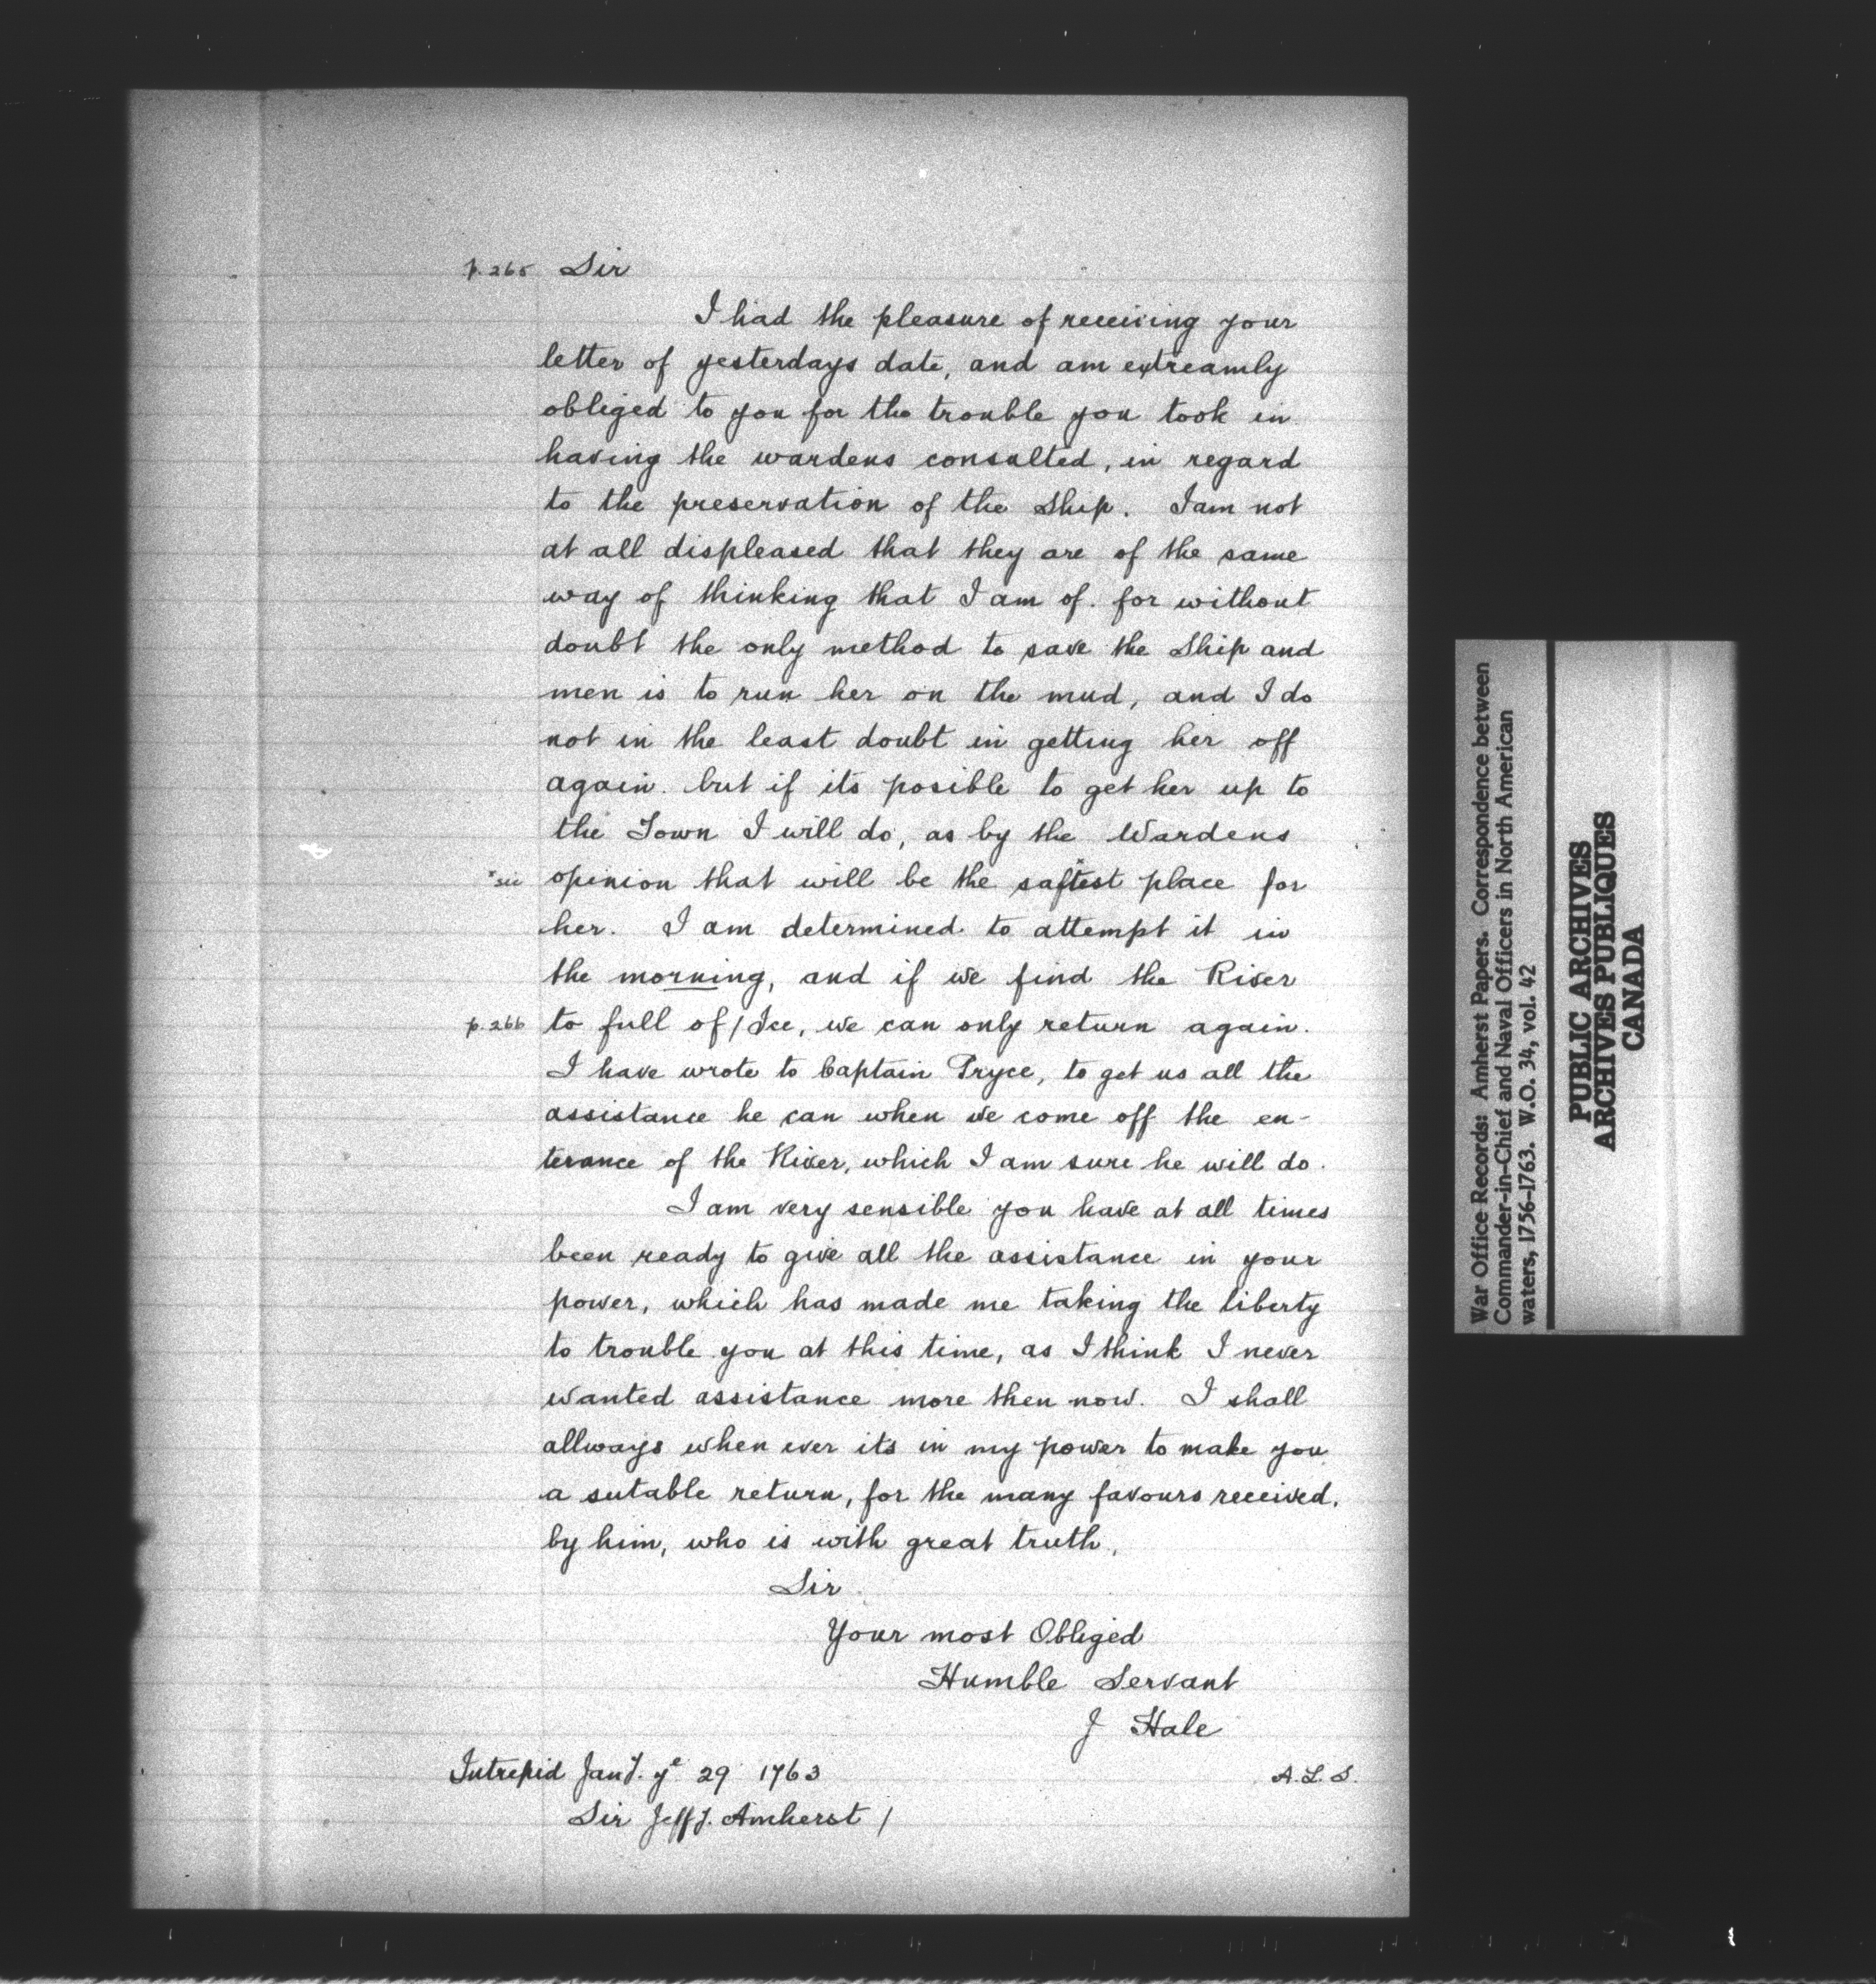 p. 265 Sir
I had the pleasure of receiving your
letter of yesterdays date, and am extreamly
obliged to you for the trouble you took in
having the wardens consulted, in regard
to the preservation of the Ship. I am not
at all displeased that they are of the same
way of thinking that I am of. for without
doubt the only method to save the Ship and
men is to run her on the mud, and I do
not in the least doubt in getting her off
again. but if its posible to get her up to
the Town I will do, as by the Wardens
*sic opinion that will be the saftest* place for
her. I am determined to attempt it in
the morning, and if we find the River
p. 266 to full of / Ice, we can only return again.
I have wrote to Captain Pryce, to get us all the
assistance he can when we come off the en-
terance of the River, which I am sure he will do.
I am very sensible you have at all times
been ready to give all the assistance in your
power, which has made me taking the liberty
to trouble you at this time, as I think I never
wanted assistance more then now. I shall
allways when ever its in my power to make you
a sutable return, for the many favours received,
by him, who is with great truth,
Sir
Your most Obliged
Humble Servant
J Hale
Intrepid Jany. ye 29 1763 A.L.S.
Sir Jeffy. Amherst /
War Office Records: Amherst Papers. Correspondence between
Commander-in-Chief and Naval Officers in North American
waters, 1756-1763. W.O. 34, vol. 42
PUBLIC ARCHIVES
ARCHIVES PUBLIQUES
CANADA